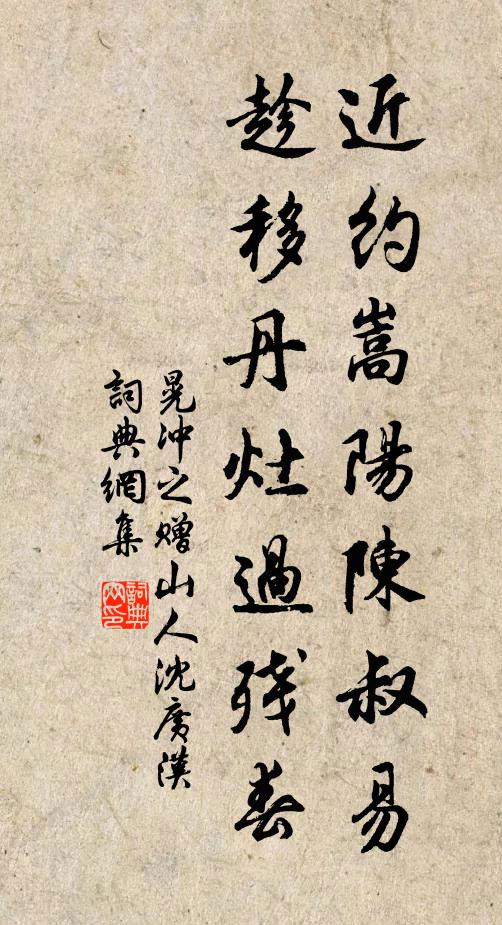 近约嵩陽陳叔易
趁移丹灶過残春
晁冲之赠山人沈广漢
詞典網集
詞典網印